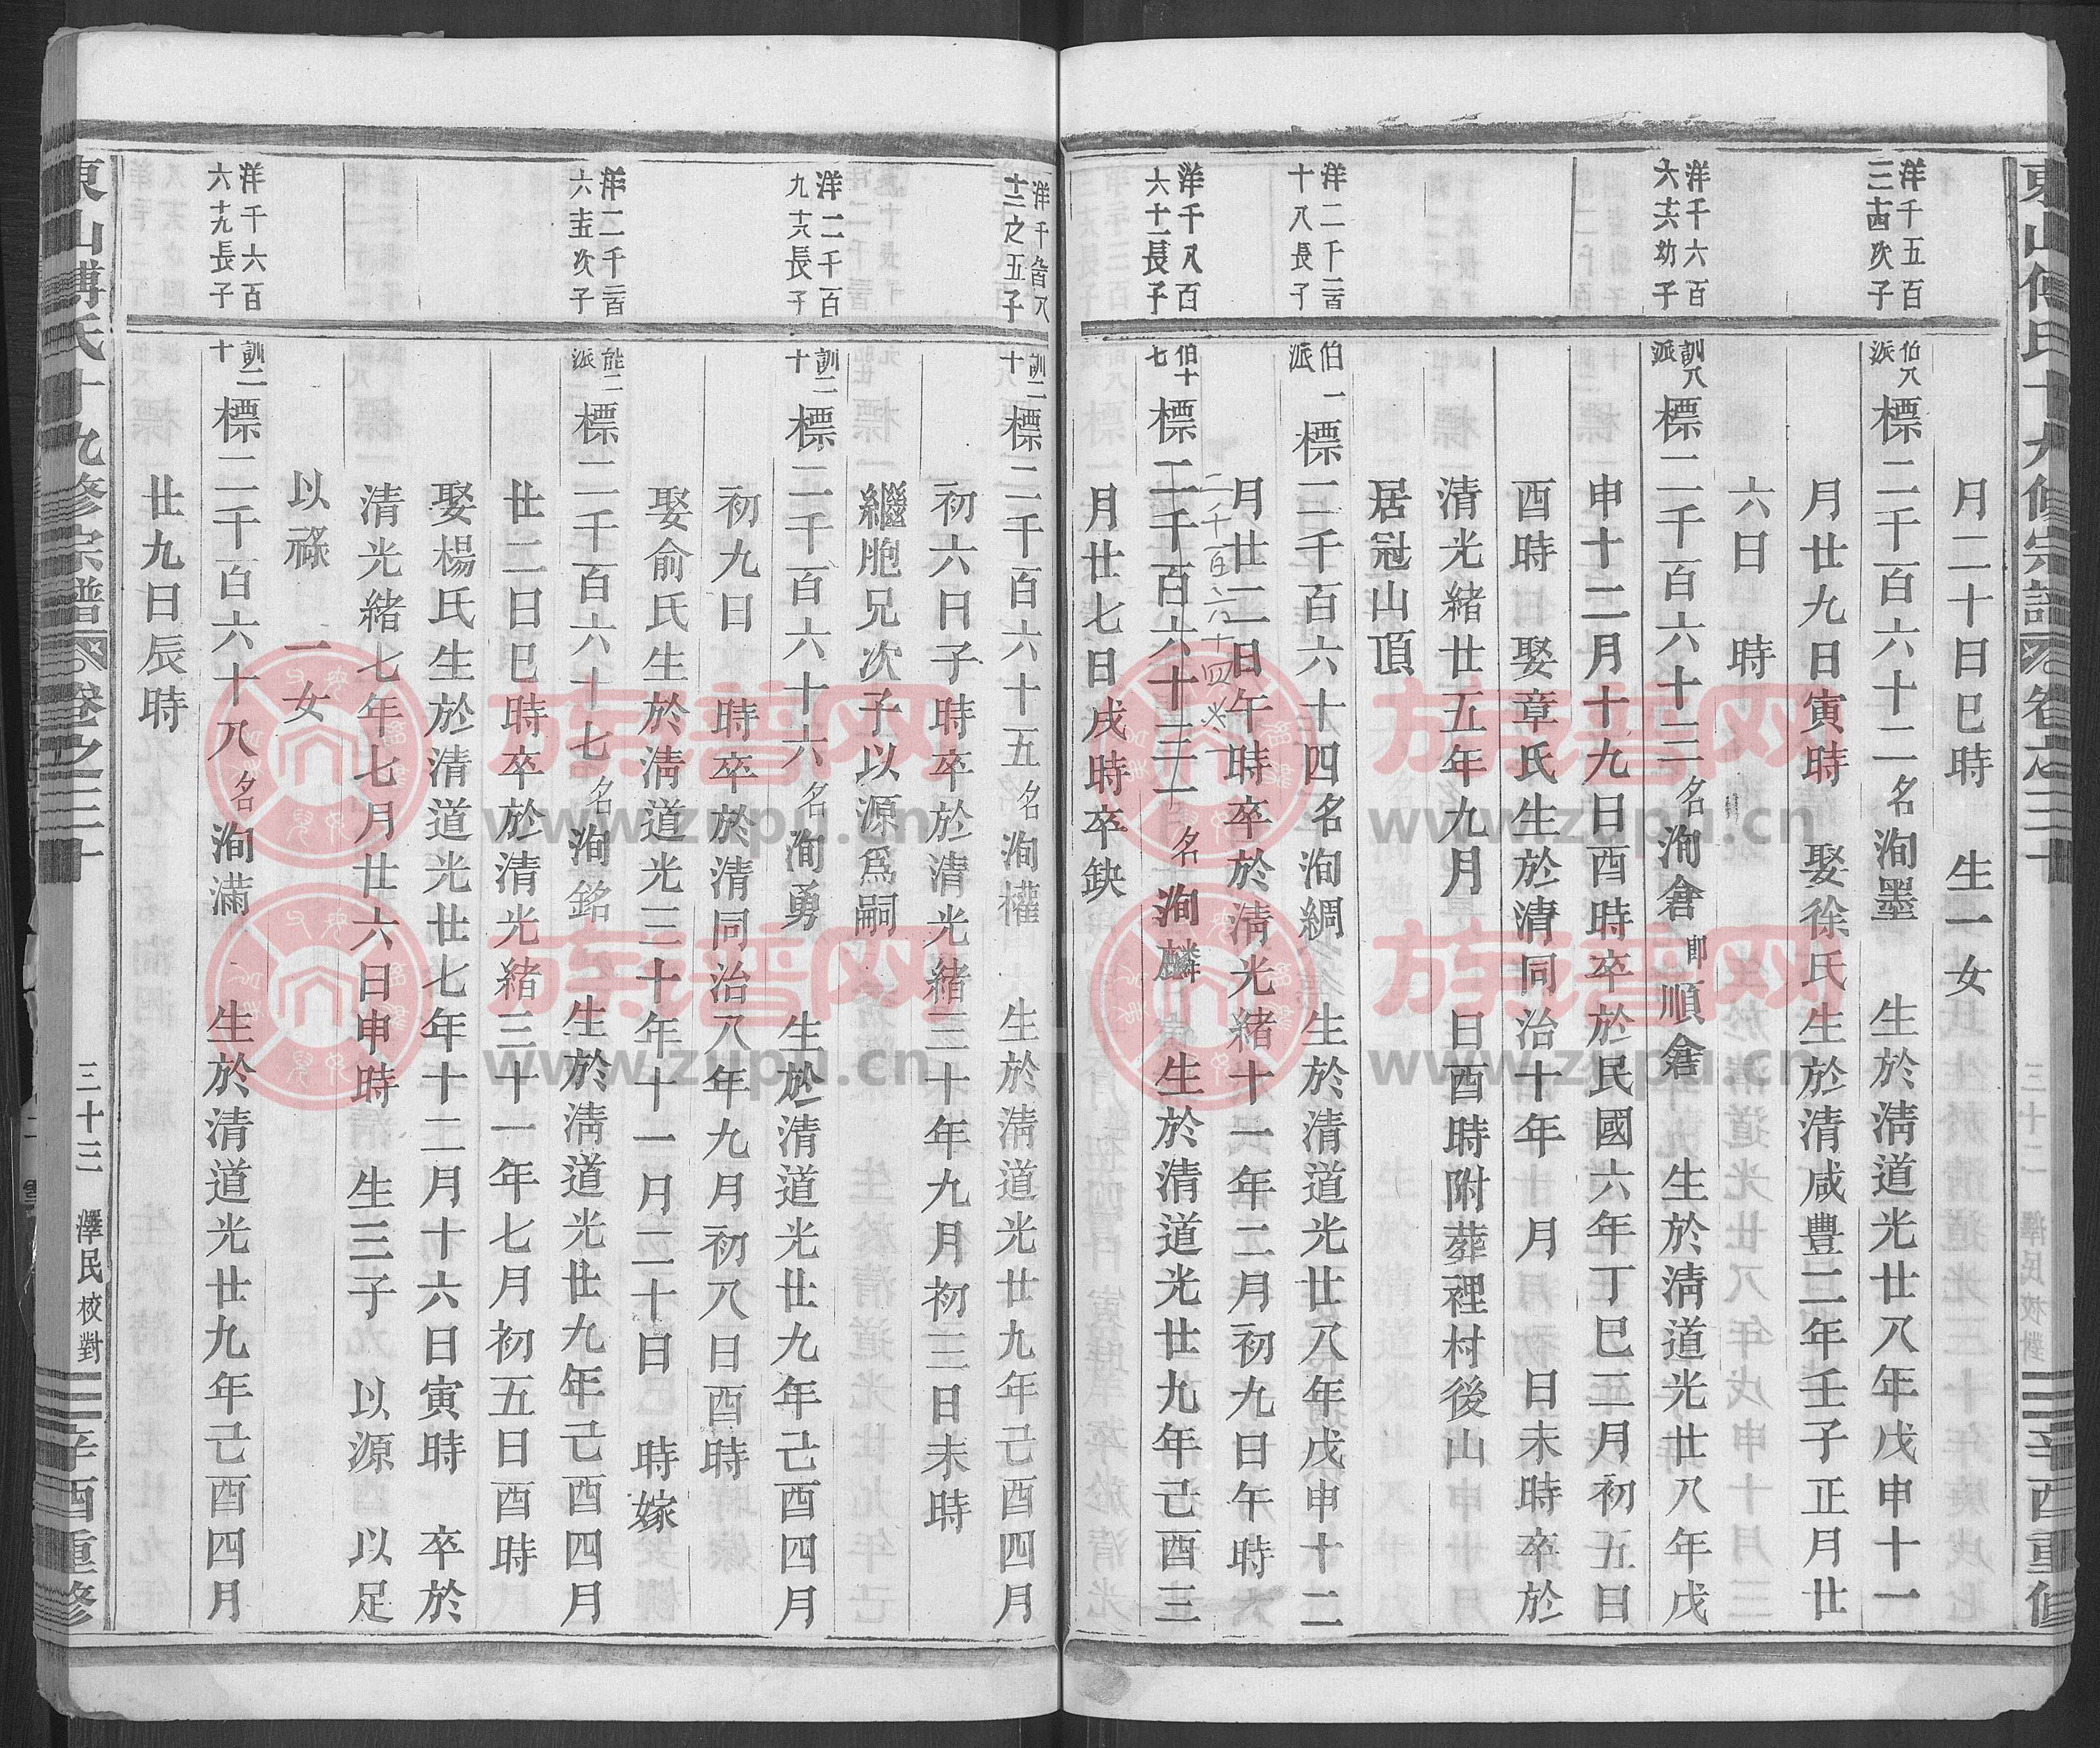 月二十日巳時　生一女
洋千五百
三十四次子
伯八
派
標二千百六十二名洵墨　生於淸道光廿八年戊申十一
月廿九日寅時　娶徐氏生於淸咸豊二年壬子正月廿
六日　時
洋千六百
六十六幼子
訓八
派
標二千百六十三名洵倉即順倉　生於淸道光廿八年戊
申十二月十九日酉時卒於民國六年丁巳二月初五日
酉時　娶章氏生於淸同治十年　月　日未時卒於
淸光緒廿五年九月　日酉時附葬裡村後山
居冠山頂
洋二千二百
十八長子
伯一
派
標二千百六十四名洵綢　生於淸道光廿八年戊申十二
月廿二日午時卒於淸光緒十一年二月初九日午時
二千一百六十四
洋千八百
六十一長子
伯十
七
標二千百六十三　名洵麟　生於淸道光廿九年己酉三
月廿七日戌時卒缺
十二之五子
訓二
十
標二千百六十五名洵權　生於淸道光廿九年己酉四月
初六日子時卒於淸光緒三十年九月初三日未時
繼胞兄次子以源爲嗣
洋二千一百
九十六長子
訓二
十
標二千百六十六名洵勇　生於淸道光廿九年己酉四月
初九日　時卒於淸同治八年九月初八日酉時
娶俞氏生於淸道光三十年十一月二十日　時嫁
洋二千二百
六十五次子
能二
派
標二千百六十七名洵銘　生於淸道光廿九年己酉四月
廿二日巳時卒於淸光緒三十一年七月初五日酉時
娶楊氏生於淸道光廿七年十二月十六日寅時　卒於
淸光緒七年七月廿六日申時　生三子　以源　以足
以祿　一女
洋千六百
六十九長子
訓二
十
標二千百六十八名洵滿　生於淸道光廿九年己酉四月
廿九日辰時
東山傅氏十九修宗譜　卷之三十　三十三　澤民校對　辛酉重修
東山傅氏十九修宗譜　卷之三十　三十二　澤民校對　辛酉重修
族譜网
www.zupu.cn
族譜网
www.zupu.cn
族譜网
www.zupu.cn
族譜网
www.zupu.cn